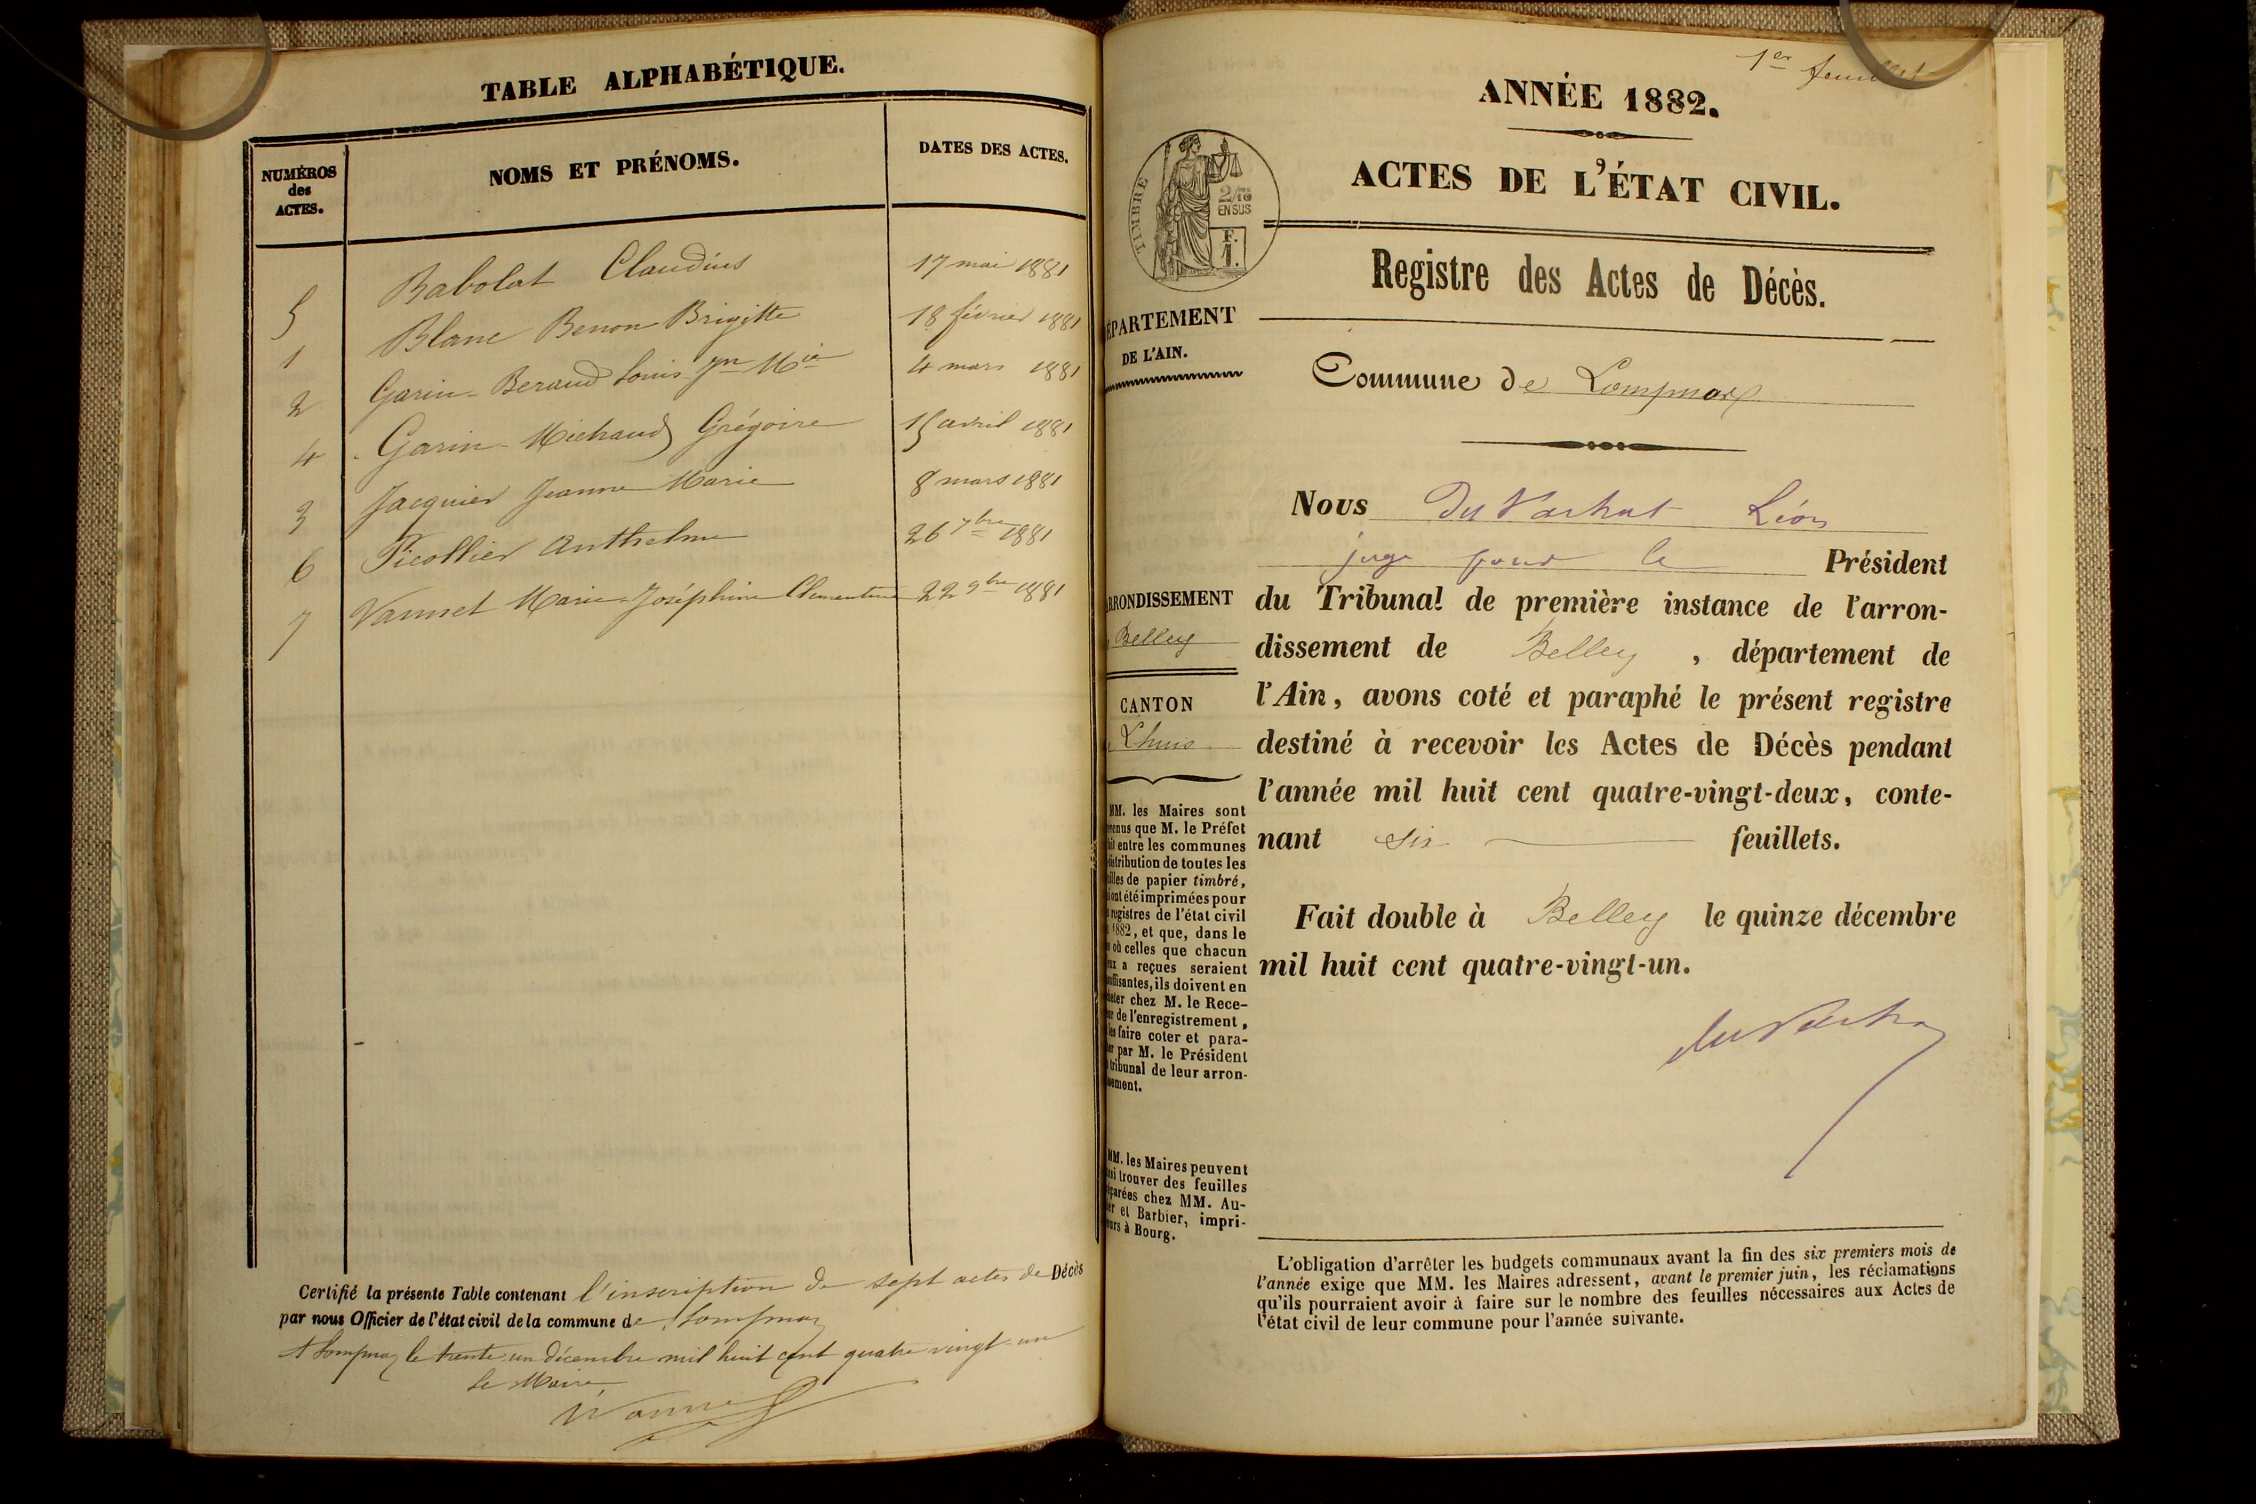 TABLE ALPHABÉTIQUE.
NUMÉROS
des
ACTES.
NOMS ET PRÉNOMS.
DATES DES ACTES.
5 Babolat Claudius 17 mai 1881
1 Blanc Benon Brigitte 18 février 1881
2 Garin-Beraud Louis Jn Mie 4 mars 1881
4 Garin-Michaud Grégoire 15 avril 1881
3 Jacquier Jeanne Marie 8 mars 1881
6 Picollier Anthelme 26 7bre 1881
7 Vannet Marie-Joséphine Clementine 22 9bre 1881
Certifié la présente Table contenant l'inscription de sept actes de Décès
par nous Officier de l'état civil de la commune de Lompnaz
A Lompnaz le trente un décembre mil huit cent quatre vingt-un
Le Maire,
Vannet
1er feuillet
ANNÉE 1882.
ACTES DE L'ÉTAT CIVIL.
TIMBRE
2/10
EN SUS
F.
1.
Registre des Actes de Décès.
ÉPARTEMENT
DE L'AIN.
Commune de Lompnaz
Nous Du Vachat Léon
juge pour le Président
du Tribunal de première instance de l'arron-
dissement de Belley, département de
l'Ain, avons coté et paraphé le présent registre
destiné à recevoir les Actes de Décès pendant
l'année mil huit cent quatre-vingt-deux, conte-
nant six feuillets.
Fait double à Belley le quinze décembre
mil huit cent quatre-vingt-un.
du Vachat
RRONDISSEMENT
Belley
CANTON
Lhuis
MM. les Maires sont
venus que M. le Préfet
ait entre les communes
distribution de toutes les
uilles de papier timbré,
i ont été imprimées pour
s registres de l'état civil
1882, et que, dans le
s où celles que chacun
eux a reçues seraient
uffisantes, ils doivent en
heter chez M. le Rece-
ur de l'enregistrement,
les faire coter et para-
her par M. le Président
tribunal de leur arron-
sement.
MM. les Maires peuvent
ssi trouver des feuilles
éparées chez MM. Au-
er et Barbier, impri-
eurs à Bourg.
L'obligation d'arrêter les budgets communaux avant la fin des six premiers mois de
l'année exige que MM. les Maires adressent, avant le premier juin, les réclamations
qu'ils pourraient avoir à faire sur le nombre des feuilles nécessaires aux Actes de
l'état civil de leur commune pour l'année suivante.